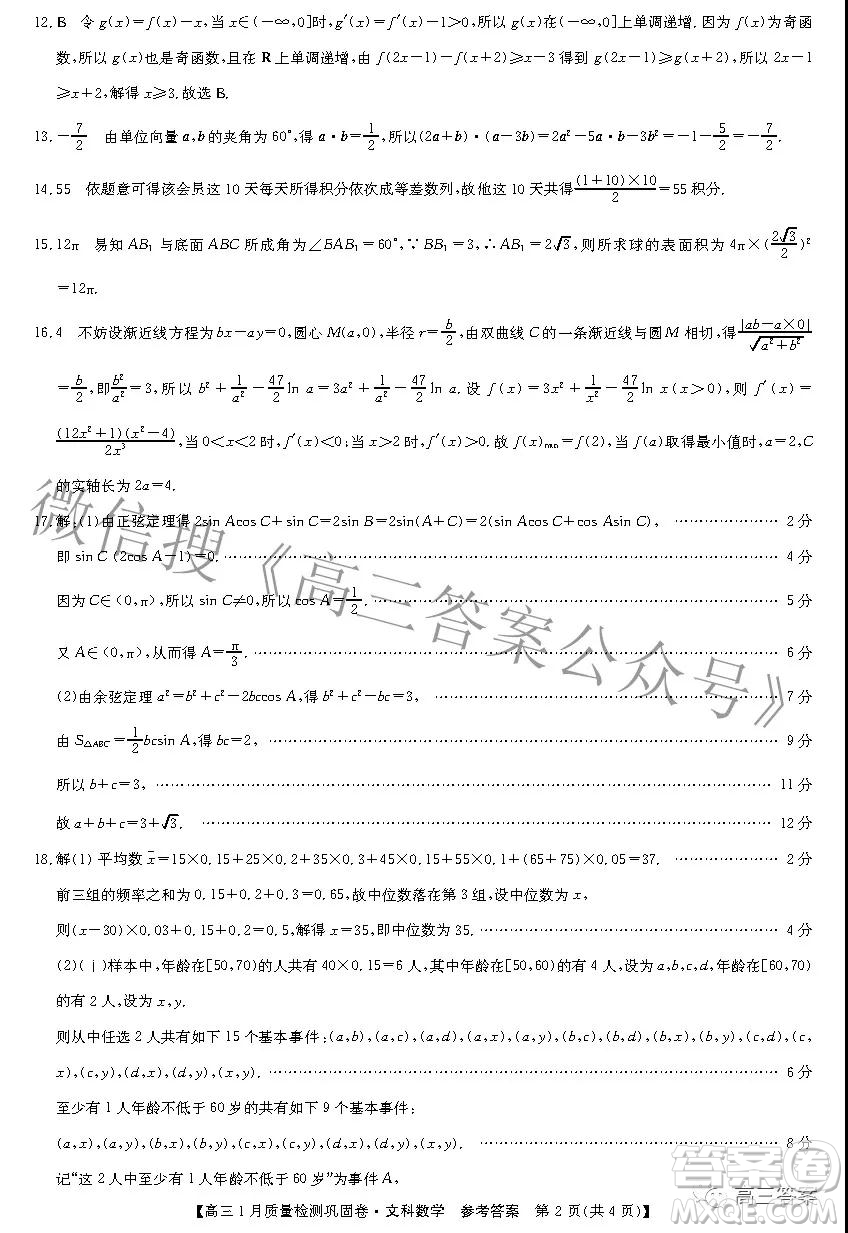 12. B 令 g(x)=f(x)-x,当 x∈(-∞,0]时,g′(x)=f′(x)-1>0,所以 g(x)在(-∞,0]上单调递增.因为 f(x)为奇函
数,所以 g(x)也是奇函数,且在 R 上单调递增,由 f(2x-1)-f(x+2)≥x-3 得到 g(2x-1)≥g(x+2),所以 2x-1
≥x+2,解得 x≥3.故选 B.
13. -7/2 由单位向量 a,b的夹角为 60°,得 a·b=1/2,所以(2a+b)·(a-3b)=2a²-5a·b-3b²=-1-5/2=-7/2.
14. 55 依题意可得该会员这 10 天每天所得积分依次成等差数列,故他这 10 天共得(1+10)×10/2=55 积分.
15. 12π 易知 AB₁ 与底面 ABC 所成角为∠BAB₁=60°,∵BB₁=3,∴AB₁=2√3,则所求球的表面积为 4π×(2√3/2)²
=12π.
16. 4 不妨设渐近线方程为 bx-ay=0,圆心 M(a,0),半径 r=b/2,由双曲线 C 的一条渐近线与圆 M 相切,得|ab-a×0|/√(a²+b²)
=b/2,即b²/a²=3,所以 b²+1/a²-47/2 ln a=3a²+1/a²-47/2 ln a.设 f(x)=3x²+1/x²-47/2 ln x(x>0),则 f′(x)=
(12x²+1)(x²-4)/2x³,当 0<x<2 时,f′(x)<0;当 x>2 时,f′(x)>0.故 f(x)min=f(2),当 f(a)取得最小值时,a=2,C
的实轴长为 2a=4.
17. 解:(1)由正弦定理得 2sin Acos C+sin C=2sin B=2sin(A+C)=2(sin Acos C+cos Asin C), ………………… 2 分
即 sin C (2cos A-1)=0. ………………… 4 分
因为 C∈(0,π),所以 sin C≠0,所以 cos A=1/2. ………………… 5 分
又 A∈(0,π),从而得 A=π/3. ………………… 6 分
(2)由余弦定理 a²=b²+c²-2bccos A,得 b²+c²-bc=3, ………………… 7 分
由 S△ABC=1/2bcsin A,得 bc=2, ………………… 9 分
所以 b+c=3, ………………… 11 分
故 a+b+c=3+√3. ………………… 12 分
18. 解(1) 平均数 x̄=15×0.15+25×0.2+35×0.3+45×0.15+55×0.1+(65+75)×0.05=37. ………………… 2 分
前三组的频率之和为 0.15+0.2+0.3=0.65,故中位数落在第 3 组,设中位数为 x,
则(x-30)×0.03+0.15+0.2=0.5,解得 x=35,即中位数为 35. ………………… 4 分
(2)(ⅰ)样本中,年龄在[50,70)的人共有 40×0.15=6 人,其中年龄在[50,60)的有 4 人,设为 a,b,c,d,年龄在[60,70)
的有 2 人,设为 x,y.
则从中任选 2 人共有如下 15 个基本事件:(a,b),(a,c),(a,d),(a,x),(a,y),(b,c),(b,d),(b,x),(b,y),(c,d),(c,
x),(c,y),(d,x),(d,y),(x,y). ………………… 6 分
至少有 1 人年龄不低于 60 岁的共有如下 9 个基本事件:
(a,x),(a,y),(b,x),(b,y),(c,x),(c,y),(d,x),(d,y),(x,y). ………………… 8 分
记“这 2 人中至少有 1 人年龄不低于 60 岁”为事件 A,
【高三 1 月质量检测巩固卷·文科数学 参考答案 第 2 页(共 4 页)】
微信搜《高三答案公众号》
高三答案
答案圈
MXQE.COM